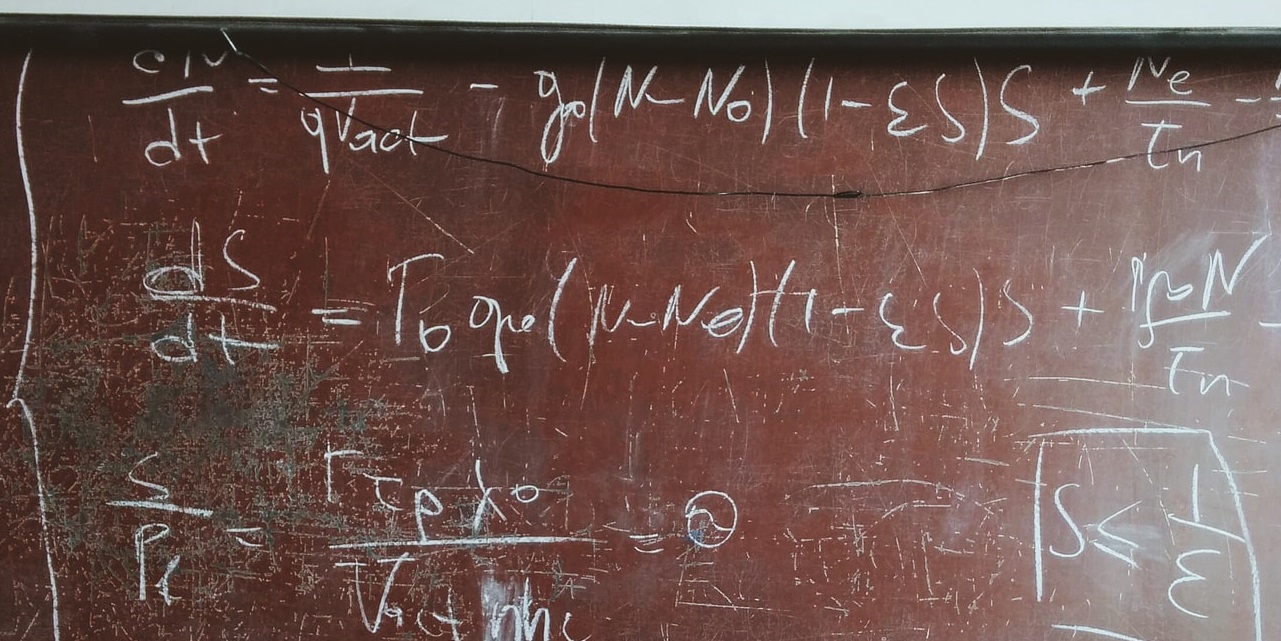 dN/dt = I/qVact - g₀(N-N₀)(1-εS)S + Ne/τn -
dS/dt = Γ₀g₀(N-N₀)(1-εS)S + N/τn -
S/Pf = Γτpλ₀/Vactηhc = ϑ
S ≤ 1/ε